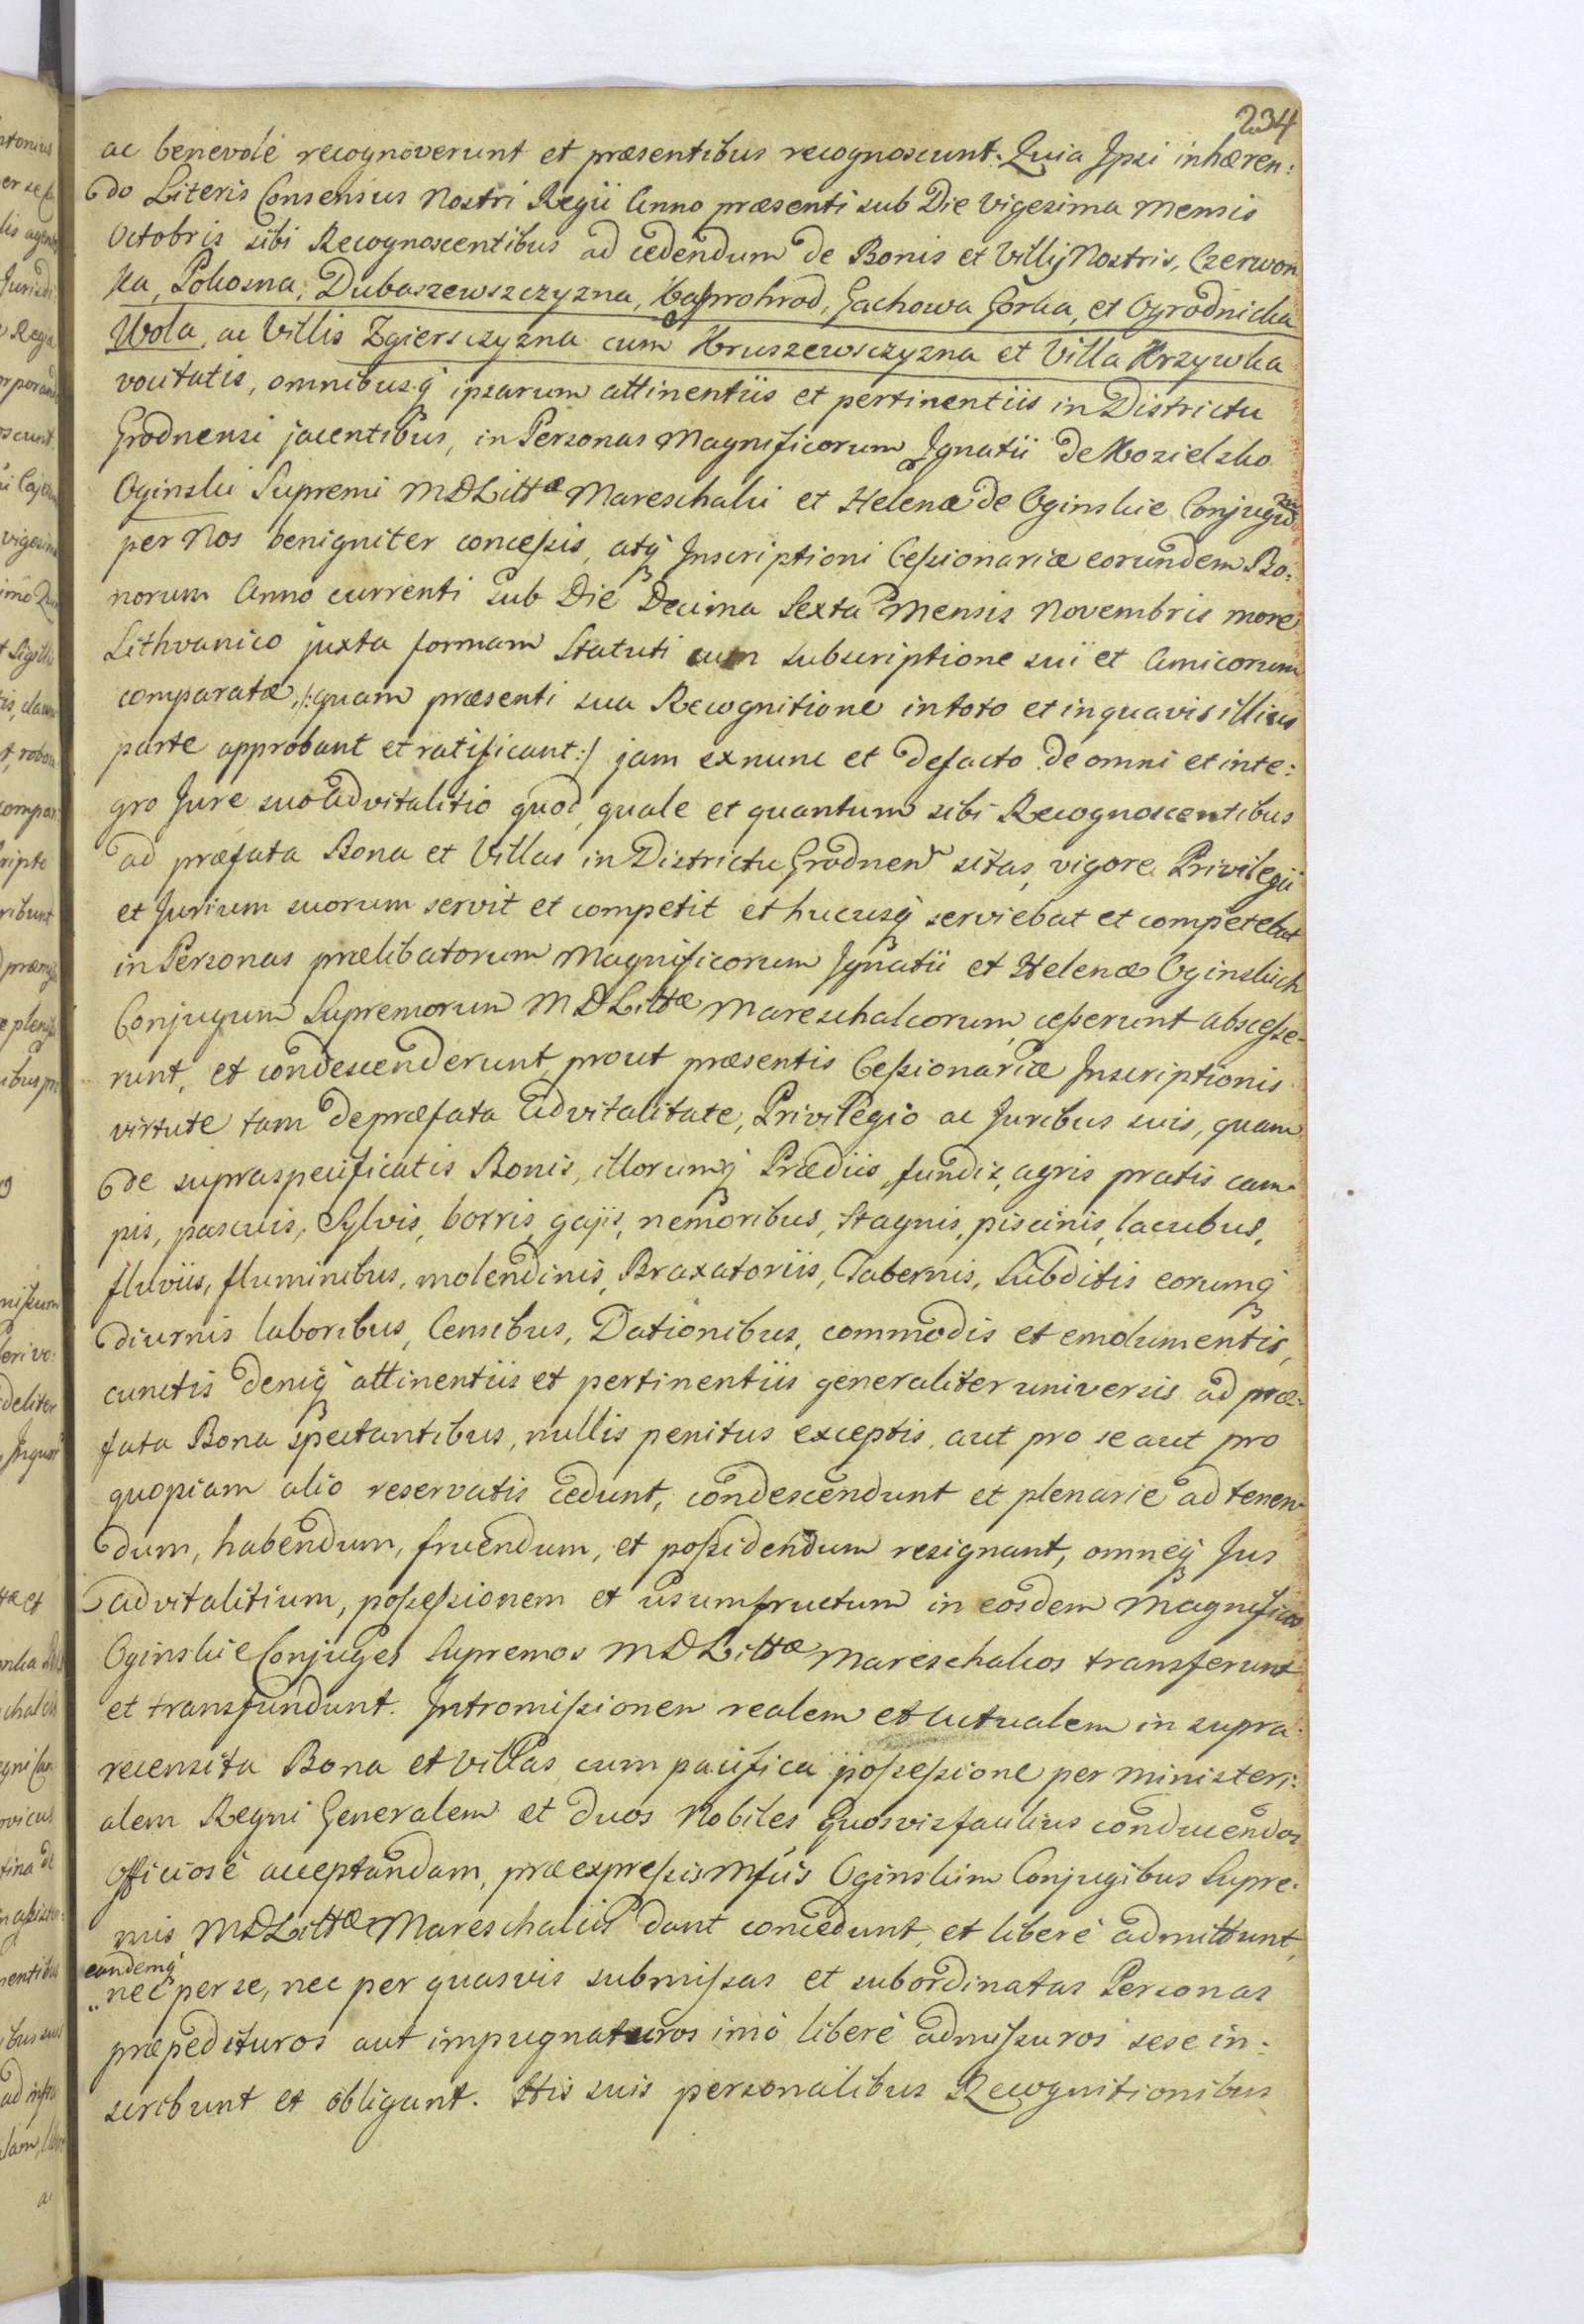 234
ac benevolè recognoverunt et præsentibus recognoscunt. Quia Ipsi inhæren:
do Literis Consensus Nostri Regii Anno præsenti sub Die Vigesima Mensis
Octobris sibi Recognoscentibus ad cedendum de Bonis et Villij Nostris, Czerwon
ka, Pohosna, Dubaszewszczyzna, Gachowa Gorka, et Ogrodnicka
Wola, ac Villis Zgiersczyzna cum Hruszewsczyzna et Villa Krzywka
vocitatis, omnibusq; ipsarum attinentiis et pertinentiis in Districtu
Grodnensi jacentibus, in Personas Magnificorum Ignatii de Kozielsko
Oginskii Supremi MDLittæ Mareschalci et Helenæ de Oginskie Conjugum
per Nos benigniter conceſsis, atq; Inscriptioni Ceſsionariæ eorundem Bo:
norum Anno currenti sub Die Decima Sexta Mensis Novembris more
Lithvanico juxta formam Statuti cum subscriptione sui et Amicorum
comparatæ, /:quam præsenti sua Recognitione in toto et in quavis illius
parte approbant et ratificant:/ jam exnunc et defacto de omni et inte:
gro Jure suo Advitalitio quod, quale et quantum sibi Recognoscentibus
ad præfata Bona et Villas in Districtu Grodnen sitas, vigore Privilegii
et Jurium suorum servit et competit et hucusq; serviebat et competebat
in Personas prælibatorum Magnificorum Ignatii et Helenæ Oginskich
Conjugum Supremorum MDLittæ Mareschalcorum, ceſserunt absceſse-
runt, et condescenderunt, prout præsentis Ceſsionariæ Inscriptionis
virtute tam de præfata Advitalitate, Privilegio ac Juribus suis, quam
de supraspecificatis Bonis, illorumq; Prædiis, fundis, agris pratis cam
pis, pascuis, Sylvis, borris, gajis, nemoribus, Stagnis, piscinis, lacubus,
fluviis, fluminibus, molendinis, Braxatoriis, Tabernis, Subditis eorumq;
diurnis laboribus, Censibus, Dationibus, commodis et emolumentis,
cunctis deniq; attinentiis et pertinentiis generaliter universis ad præ-
fata Bona spectantibus, nullis penitus exceptis, aut pro se aut pro
quopiam alio reservatis cedunt, condescendunt et plenarie ad tenen
dum, habendum, fruendum, et poſsidendum resignant, omneq; Jus
advitalitium, poſseſsionem et usumfructum in eosdem Magnificos
Oginskie Conjuges Supremos MDLittæ Mareschalcos transferunt
et transfundunt. Intromiſsionem realem et actualem in supra-
recensita Bona et Villas, cum pacifica poſseſsione per Ministeri:
alem Regni Generalem et duos Nobiles Quosvis faulius conducendos
Officiosè acceptandam, præexpreſsis Mſcis Oginskim Conjugibus Supre-
mis MDLittæ Mareschalcis dant concedunt, et liberè admittunt,
eandemq;
nec per se, nec per quasvis submiſsas et subordinatas Personas
præpedituros aut impugnaturos imò liberè admiſsuros sese in:
scribunt et obligant. His suis personalibus Recognitionibus